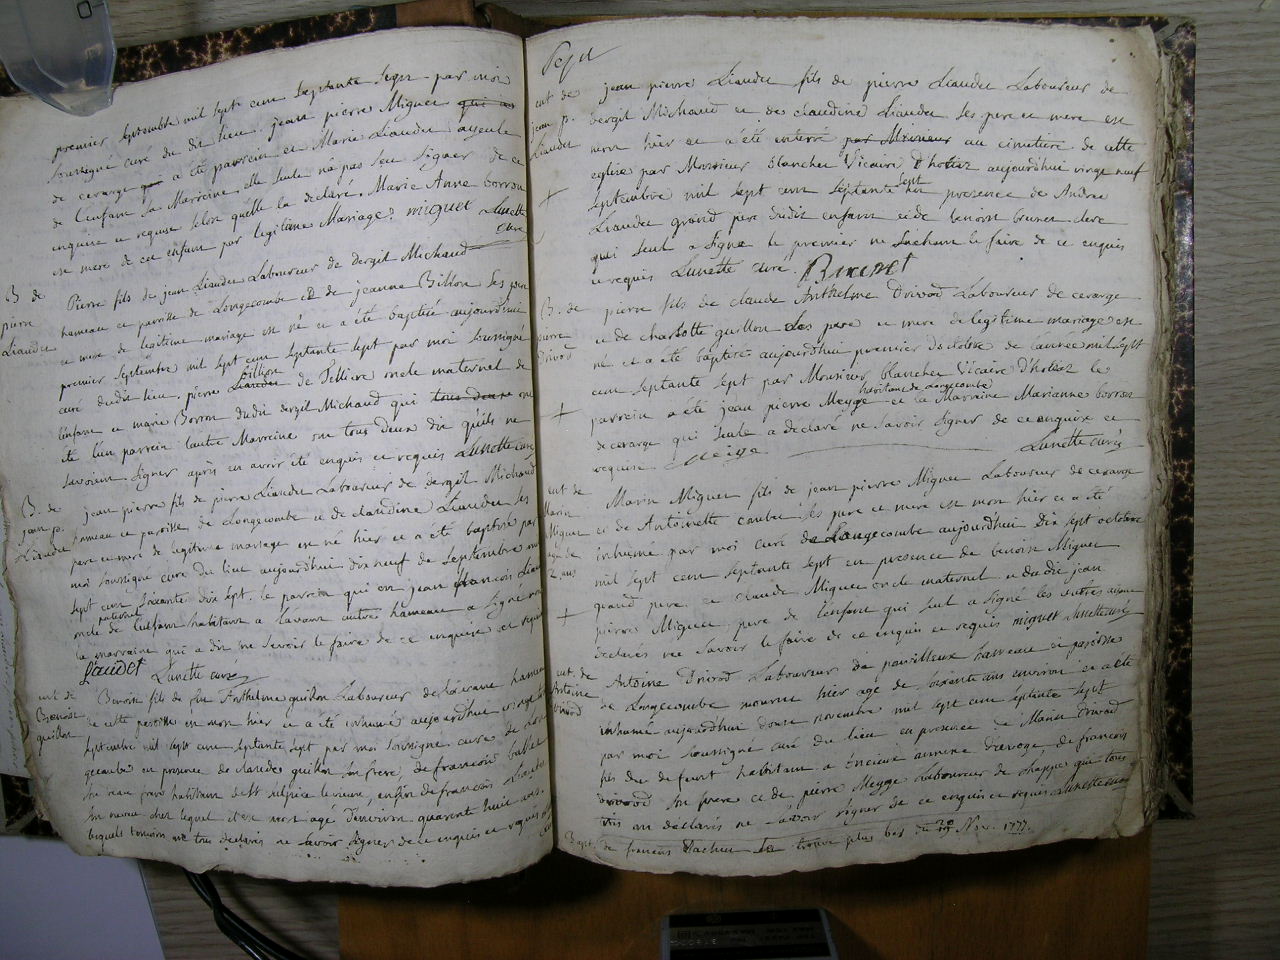 premier septembre mil sept cent septante sept par moi
soussigné curé du dit lieu. jean pierre Miguet qui
de cerarge qui a été parrein et Marie Liaudet ayeule
de l'enfant sa Marreine, elle seule n'a pas seu signer de ce
enquise et requise selon qu'elle la declaré. Marie Anne borron
est mere de cet enfant par legitime Mariage. miguet Lunette
curé
B de
pierre
Liaudet
Pierre fils de jean Liaudet Laboureur de dergil Michaud
hameau et paroisse de Longecombe et de jeanne Billon ses pere
et mere de legitime mariage est né et a été baptisé aujourd'hui
premier septembre mil sept cent septante sept par moi soussigné
curé dudit lieu. pierre Liaudet billion de Pelliere oncle maternel de
l'enfant et marie Borron dudit dergil Michaud qui tous deux ont
été l'un parrein l'autre Marreine ont tous deux dit qu'ils ne
savoient signer après en avoir été enquis et requis Lunette curé
B. de
jean p.
Liaudet
jean pierre fils de pierre Liaudet Laboureur de dergil Michaud
hameau et paroisse de Longecombe et de claudine Liaudet ses
pere et mere de legitime mariage est né hier et a été baptisé par
moi soussigné curé du lieu aujourd'hui dix neuf de septembre mil
sept cent soixante dix sept. le parrein qui est jean francois Liaudet
oncle paternel de l'enfant habitant a lavant autres hameau a signé non
la marraine qui a dit ne savoir le faire de ce enquise et requise
Liaudet Lunette curé
ent de
Benoise
guillon
Benoise fils de feu Anthelme guillon Laboureur de hameau
de cette paroisse est mort hier et a été inhumé aujourd'huy vingt
septembre mil sept cent septante sept par moi soussigné curé de Lon-
gecombe en presence de claude guillon son frere, de francois ballet
son beau frere habitant de St sulpice le vieux, enfin de francois Liaudet
son neveu chez lequel il est mort agé d'environ quarante huit ans.
lesquels temoins ont tous declarés ne savoir signer de ce enquis et requis
Sept
ent de
jean p.
Liaudet
jean pierre Liaudet fils de pierre Liaudet Laboureur de
dergil Michaud et de claudine Liaudet ses pere et mere est
mort hier et a été enterré par Monsieur au cimitière de cette
eglise par Monsieur blanchet Vicaire d'hotiaz aujourd'hui vingt neuf
septembre mil sept cent septante sept presence de Andre
Liaudet grand pere dudit enfant et de benoit brunet clerc
qui seul a signé le premier ne sachant le faire de ce enquis
et requis Lunette curé. Brunet
B. de
pierre
Drivod
pierre fils de claude Anthelme Drivod Laboureur de cerarge
et de charlotte guillon ses pere et mere de legitime mariage est
né et a été baptisé aujourd'hui premier d'octobre de l'année mil sept
cent septante sept par Monsieur blanchet Vicaire d'hotiaz le
parrein a été jean pierre Meyge habitant de Longecombe et la Marraine Marianne borron
de cerarge qui seule a declaré ne savoir signer de ce enquise et
requise Meige Lunette curé
ent de
Marin
Miguet
agé de
2 ans
Marin Miguet fils de jean pierre Miguet Laboureur de cerarge
et de Antoinette combet ses pere et mere est mort hier et a été
inhumé par moi curé de Longecombe aujourd'hui dix sept octobre
mil sept cent septante sept en presence de benoise Miguet
grand pere, et claude Miguet oncle maternel, et du dit jean
pierre Miguet pere de l'enfant qui seul a signé les autres ayant
declarés ne savoir le faire de ce enquis et requis miguet Lunette curé
ent. de
Antoine
Drivod
Antoine Drivod Laboureur de pavilleux hameau et paroisse
de Longecombe mourut hier agé de soixante ans environ et a été
inhumé aujourd'hui douze novembre mil sept cent septante sept
par moi soussigné curé du lieu en presence de Marin Drivod
fils du defunt habitant a Encieux annexe d'evoge, de francois
drivod son frere et de pierre Meyge Laboureur de chappes qui tous
trois ont declarés ne savoir signer de ce enquis et requis Lunette curé
Bapt. de francois Pachen se trouve plus bas du 29 Nov. 1777.